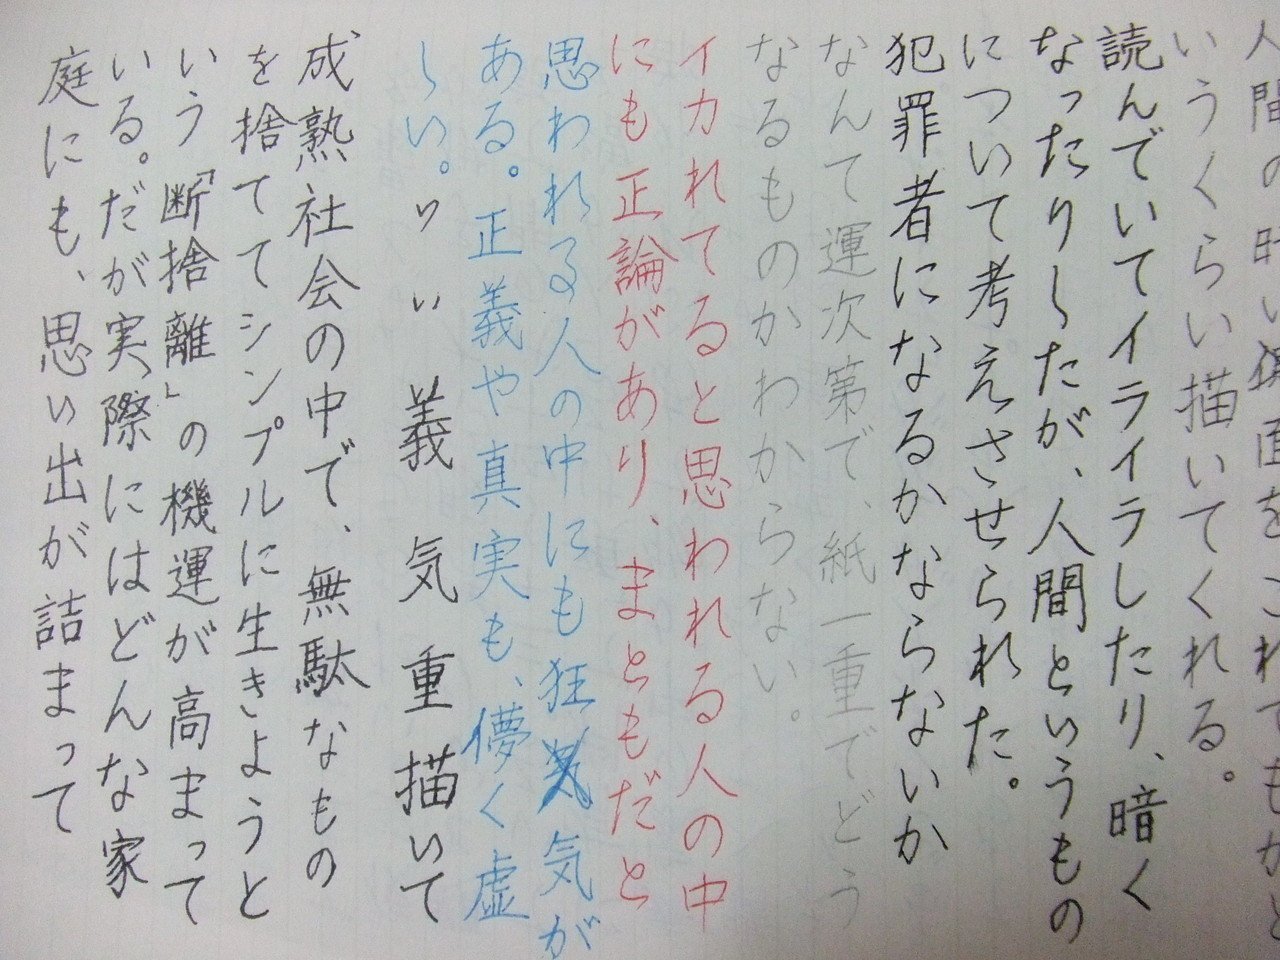 人間の暗い裏面をこれでもかと
いうくらい描いてくれる。
読んでいてイライラしたり、暗く
なったりしたが、人間というもの
について考えさせられた。
犯罪者になるかならないか
なんて運次第で、紙一重でどう
なるものかわからない。
イカれてると思われる人の中
にも正論があり、まともだと
思われる人の中にも狂気が
ある。正義や真実も、儚く虚
しい。りい 義 気 重 描いて
成熟社会の中で、無駄なもの
を捨ててシンプルに生きようと
いう「断捨離」の機運が高まって
いる。だが実際にはどんな家
庭にも、思い出が詰まって